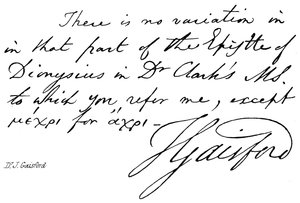 There is no variation in
in that part of the Epistle of
Dionysius in Dr Clark's MS.
to which you refer me, except
μέχρι for άχρι -
TGaisford
Dr. J. Gaisford